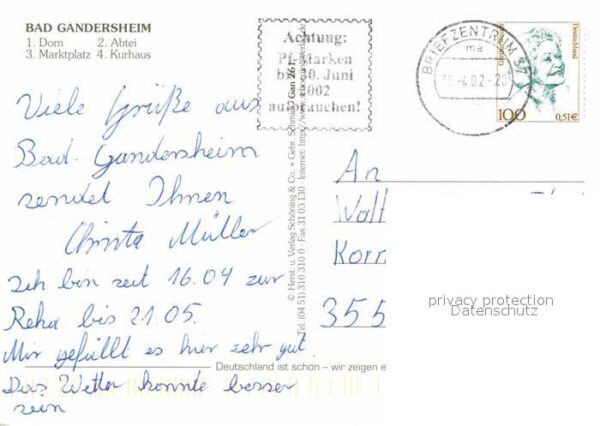 BAD GANDERSHEIM
1. Dom 2. Abtei
3. Marktplatz 4. Kurhaus
Viele Grüße aus
Bad. Gandersheim
sendet Ihnen
Christa Müller
Ich bin seit 16.04 zur
Reha bis 21.05.
Mir gefüllt es hier sehr gut.
Das Wetter konnte besser
sein
Achtung:
Pf-Marken
bis 30. Juni
2002
aufbrauchen!
BRIEFZENTRUM 37
ma
Deutschland
100 0,51€
© Herst. u. Verlag Schöning & Co. + Gebr. Schmidt
Gan 26
Tel. (04 51) 310 310 0 Fax 31 03 130 Internet: http://www.
Deutschland ist schön – wir zeigen e
An
Walt
Korn
355
privacy protection
Datenschutz